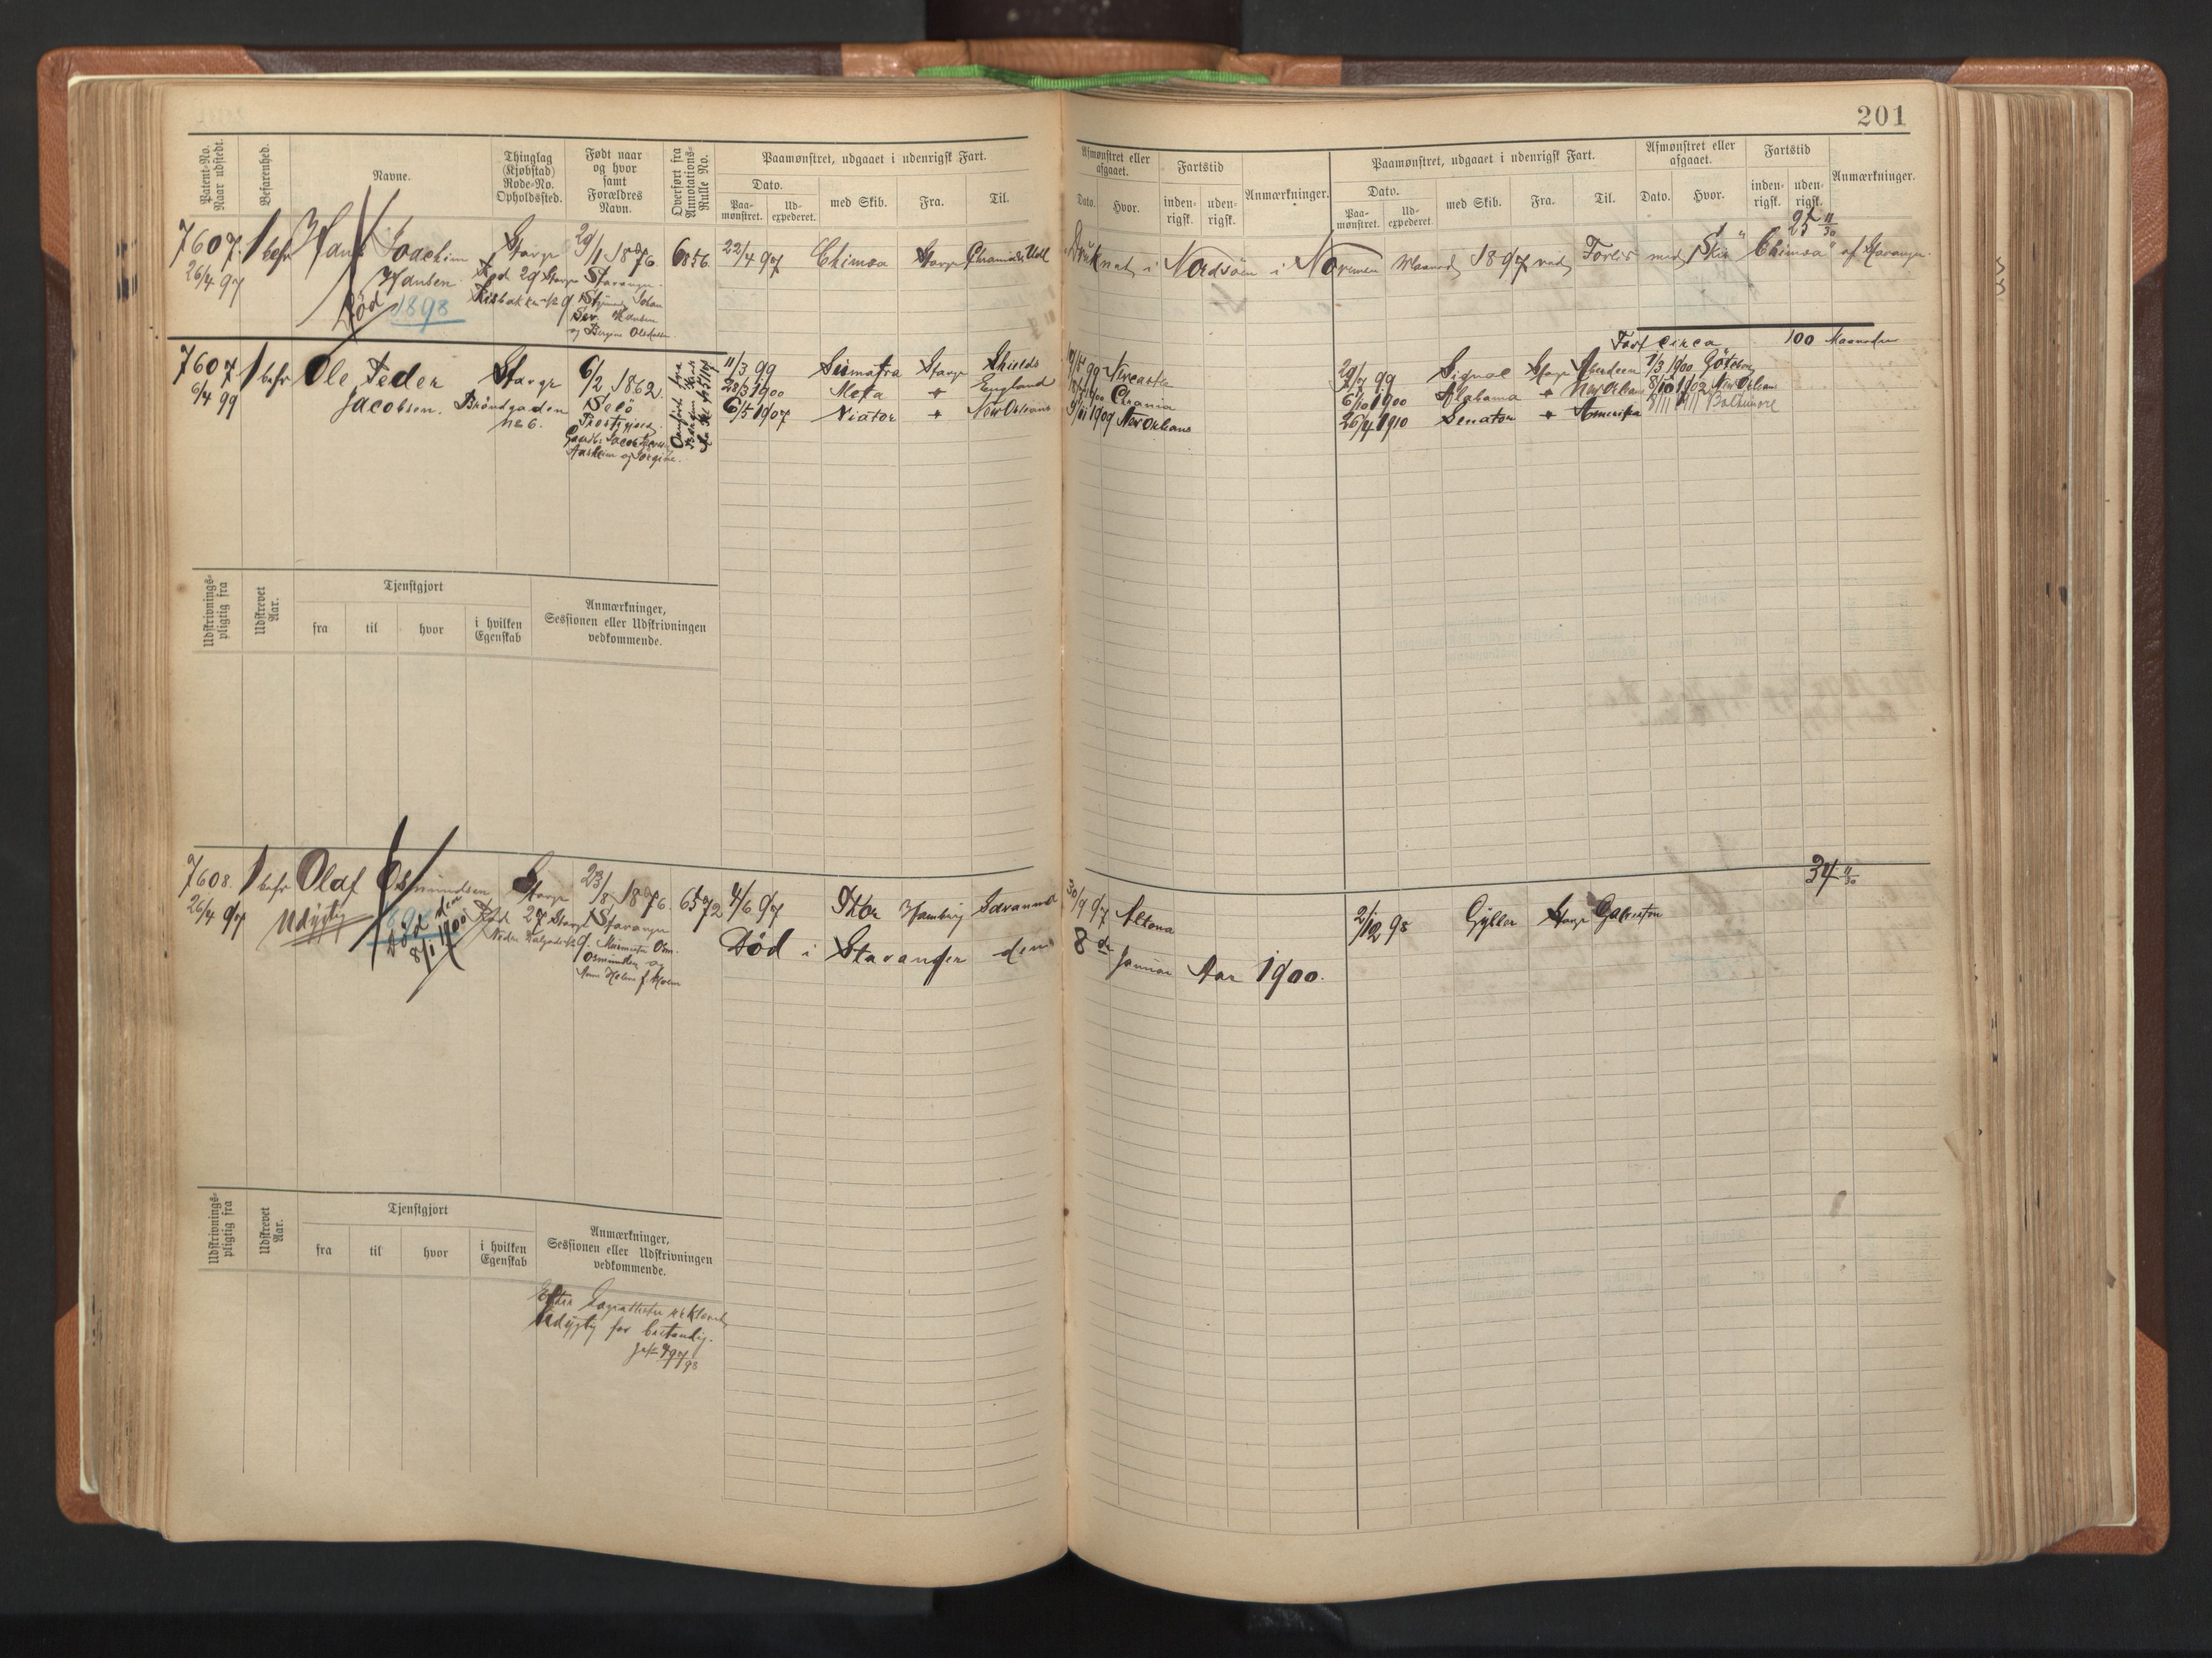 201
Patent-No. Naar udstedt.
Befarenhed.
Navne.
Thinglag (Kjøbstad) Rode-No. Opholdssted.
Født naar og hvor samt Forældres Navn.
Overført fra Annotations-Rulle No.
Paamønstret, udgaaet i udenrigsk Fart.
Dato.
Paa-mønstret.
Ud-expederet.
med Skib.
Fra.
Til.
Afmønstret eller afgaaet.
Dato.
Hvor.
Fartstid
inden-rigsk.
uden-rigsk.
Anmærkninger.
Paamønstret, udgaaet i udenrigsk Fart.
Dato.
Paa-mønstret.
Ud-expederet.
med Skib.
Fra.
Til.
Afmønstret eller afgaaet.
Dato.
Hvor.
Fartstid
inden-rigsk.
uden-rigsk.
Anmærkninger.
7607. 1 befr Hans Joachim Stavgr 29/1 1876 6856. 22/4 97 Chimæra Stavgr
26/4 97 Hansen. Rod 29 Stavgr Stavanger.
Død 1898
Hansen
Druknet i Nordsøen i November Maaned 1897 ved Forlis med Skib af Stavanger.
7607 1 befr Ole Peder Stavgr 6/2 1862. 11/3 99 Sumatra Stavgr Shields
6/4 99 Jacobsen. Brøndgaden No 6. Selø
28/3 1900 Meta England
6/5 1907 Viator New Orleans
Præstgjæld.
Newcastle
Chrania
9/11 1909 New Orleans
Fart circa 100 Maaneder
29/7 99 Signal Stavgr Aberdeen 7/3 1900 Göteborg
6/10 1900 Alabama New Orleans 8/10 1902 New Orleans
26/4 1910 Senator Amerika Baltimore
Udskrivnings-pligtig fra
Udskrevet Aar.
Tjenstgjort
fra
til
hvor
i hvilken Egenskab
Anmærkninger, Sessionen eller Udskrivningen vedkommende.
7608. 1 befr Olaf Osmundsen Stavgr 23/8 1876. 6572 4/6 97 Thor Hamburg Savannah 30/9 97 Altona
26/4 97 Udygtig Død den 8/1 1900 Rod 27 Stavgr Stavanger
Osmundsen og
Død i Stavanger den 8de Januar Aar 1900.
2/12 98 Gyller Stavgr Galveston
34 11/30
Udskrivnings-pligtig fra
Udskrevet Aar.
Tjenstgjort
fra
til
hvor
i hvilken Egenskab
Anmærkninger, Sessionen eller Udskrivningen vedkommende.
Udygtig for bestandig.